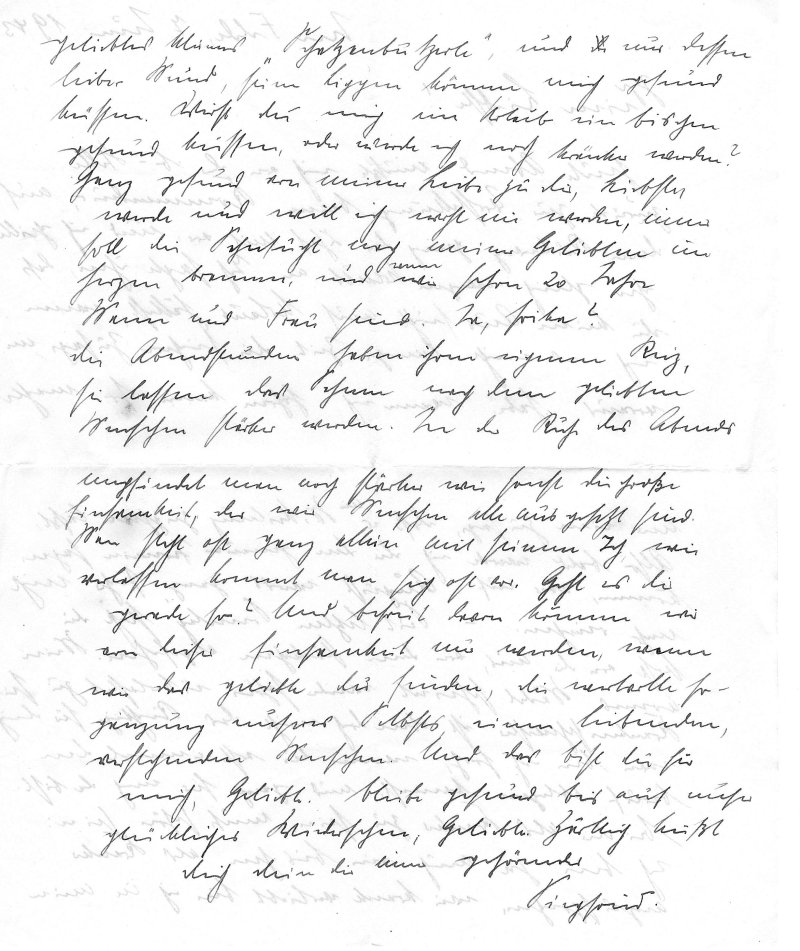 geliebtes kleines „Schatzenbutzerle“, und nur dessen
lieber Mund, seine Lippen können mich gesund
küssen. Wirst du mich im Urlaub ein bischen
gesund küssen, oder werde ich noch kränker werden?
Ganz gesund von meiner Liebe zu dir, Liebster,
werde und will ich wohl nie werden, immer
soll die Sehnsucht nach meiner Geliebten im
Herzen brennen, und wenn wir schon 20 Jahre
Mann und Frau sind. Ja,
die Abendstunden haben ihren eigenen Reiz,
sie lassen das Sehnen nach dem geliebten
Menschen stärker werden. In der Ruhe des Abends
empfindet man noch stärker wie sonst die große
Einsamkeit, der wir Menschen alle ausgesetzt sind.
Man steht oft ganz allein mit seinem Ich, wie
verlassen kommt man sich oft vor. Geht es dir
gerade so? Und befreit davon können wir
von dieser Einsamkeit nur werden, wenn
wir das geliebte du finden, die wertvolle Er-
gänzung unseres Selbsts einen liebenden,
verstehenden Menschen. Und das bist du für
mich, Geliebte. Bleibe gesund bis auf unser
glückliches Wiedersehen, Geliebte. Zärtlich küßt
dich dein dir immer gehörender
Siegfried.